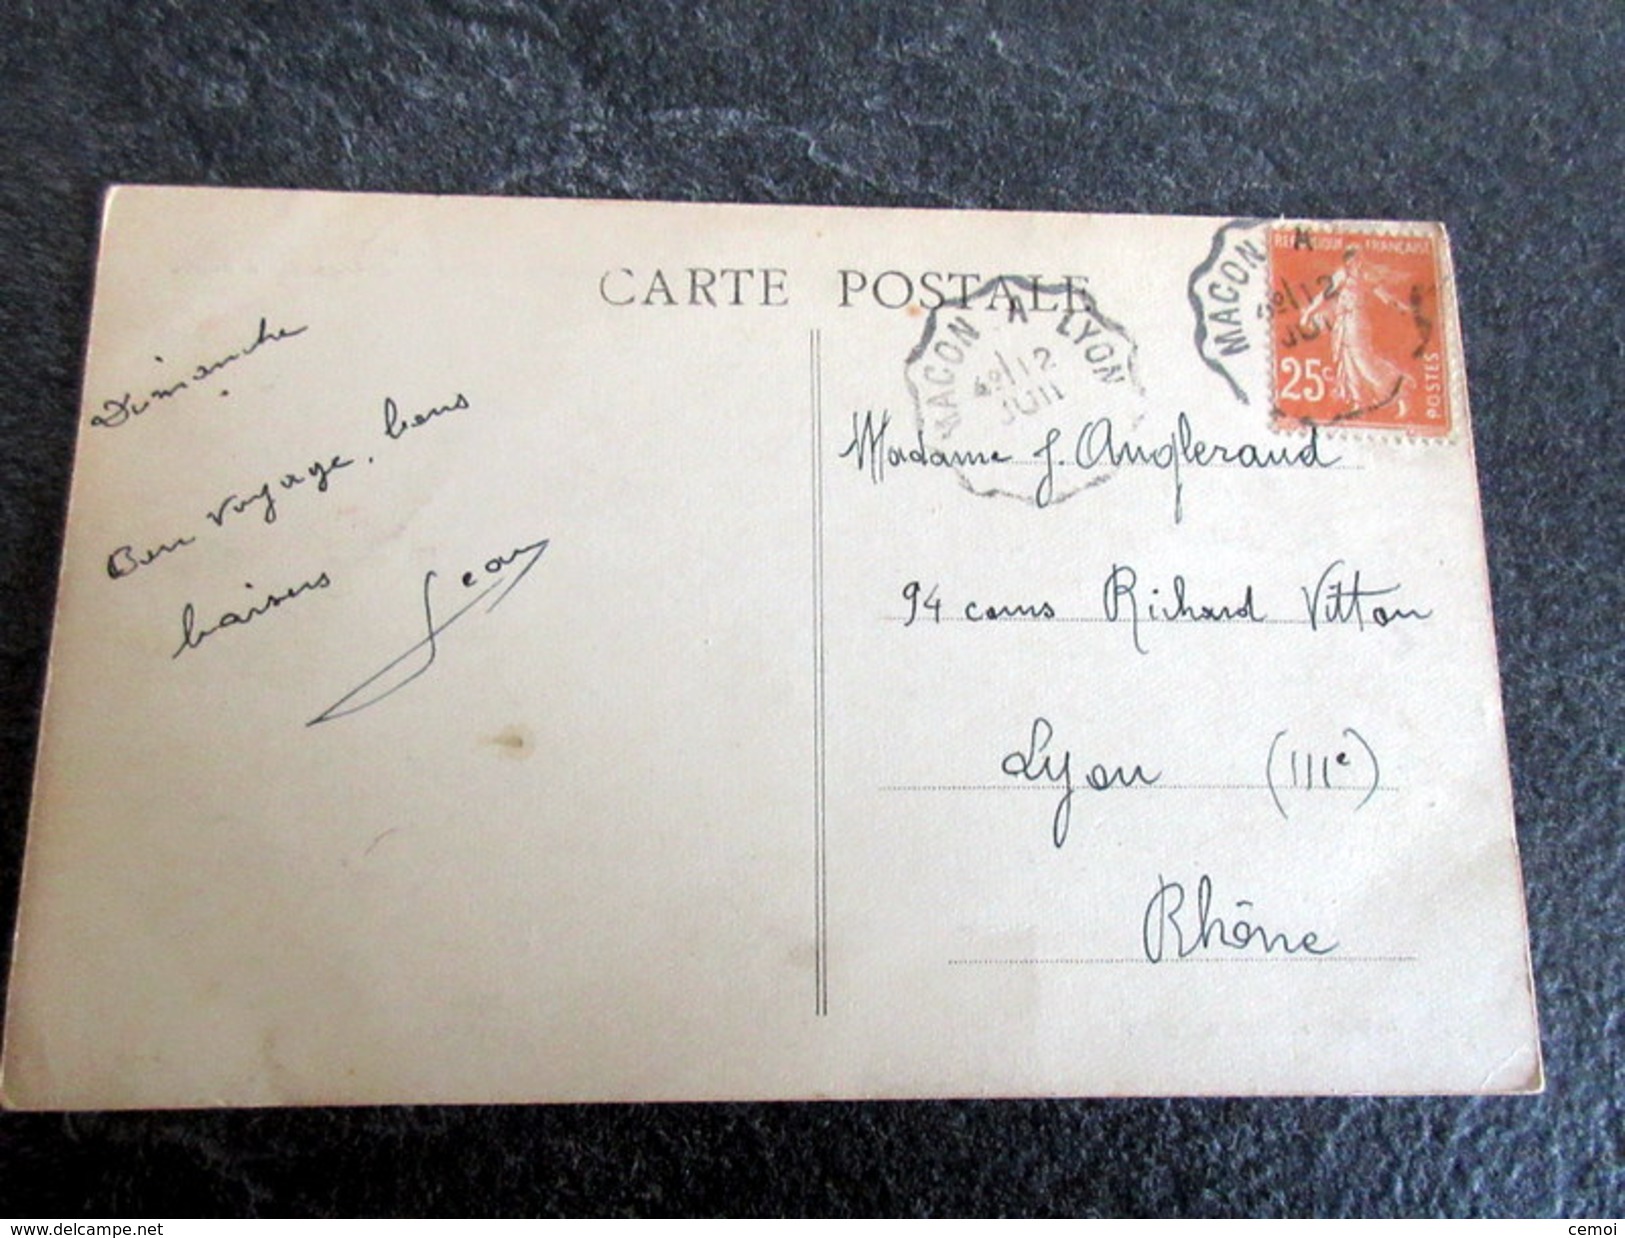 CARTE POSTALE
Dimanche
Bon voyage, bons
baisers Jean
MACON A LYON
12
JUIL
MACON A
12
JUI
REPUBLIQUE FRANÇAISE
25c
POSTES
Madame J. Angleraud
94 cours Richard Vitton
Lyon (IIIe)
Rhône
www.delcampe.net
cemoi